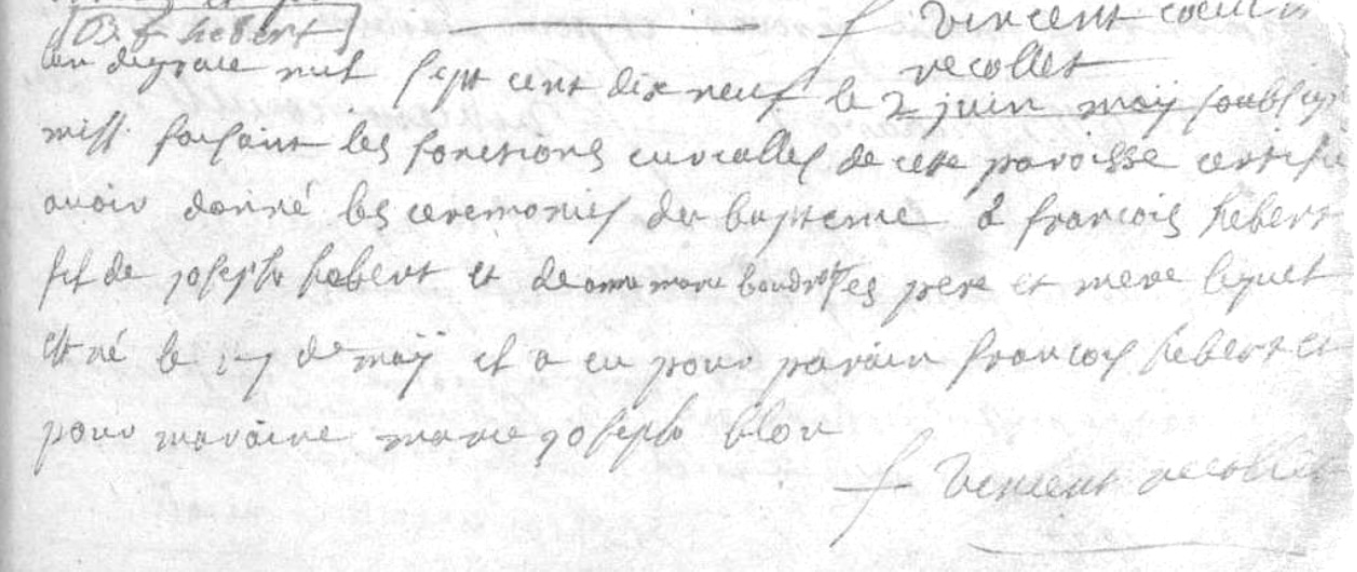 f vincent
[B. f hebert] recollet
lan de grace mil sept cent dix neuf le 2 juin may soubs
miss. faisant les fonctions curialles de cette paroisse certifie
avoir donné les ceremonies du bapteme a francois hebert
fil de joseph hebert et de anne marie boudrot ses pere et mere lequel
est né le 17 de maÿ il a eu pour parain francois hebert et
pour maraine marie joseph blou
f vincent recollet